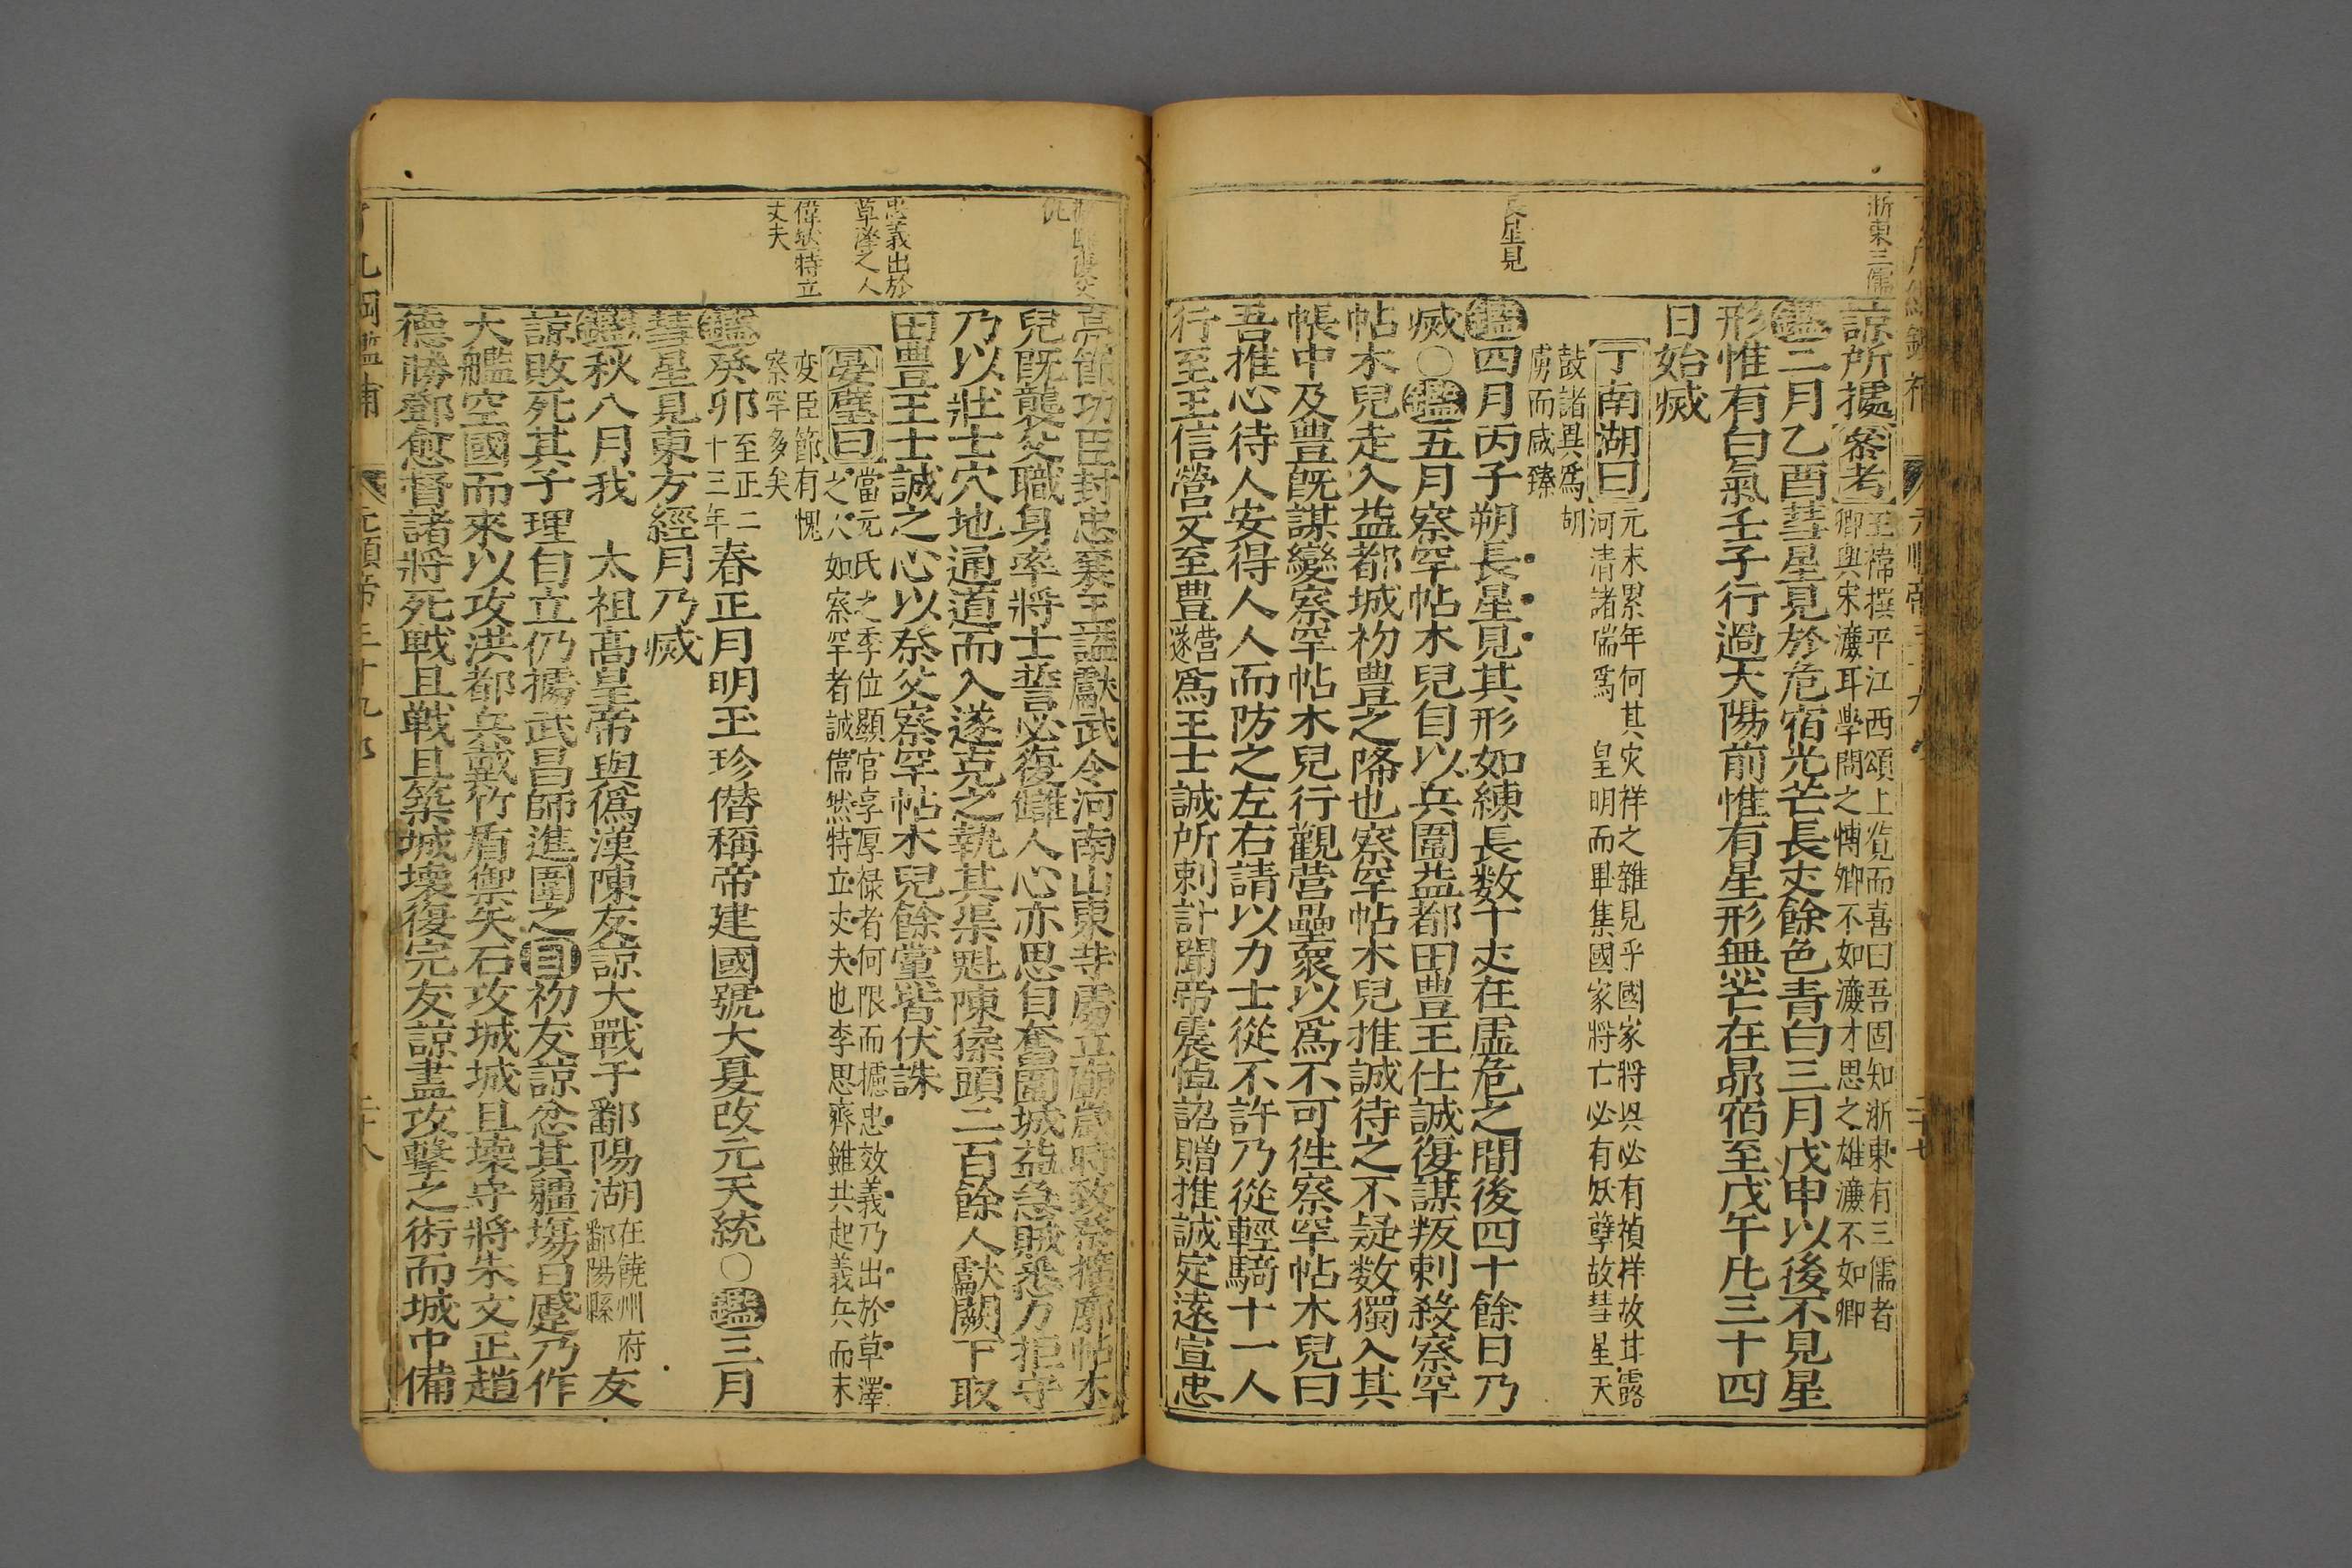 浙東三儒
諒所據叅考王禕撰平江西頌上覽而喜曰吾固知浙東有三儒者
卿與宋濂耳學問之博卿不如濂才思之雄濂不如卿
鑑二月乙酉彗星見於危宿光芒長丈餘色青白三月戊申以後不見星
形惟有白氣壬子行過太陽前惟有星形無芒在昴宿至戊午凡三十四
日始滅
丁南湖曰元末累年何其灾祥之雜見乎國家將興必有禎祥故甘露
河清諸喘爲　皇明而畢集國家將亡必有妖孽故彗星天
鼓諸異爲胡
虜而咸臻
長星見
鑑四月丙子朔長星見其形如練長数十丈在虚危之間後四十餘日乃
滅○鑑五月察罕帖木兒自以兵圍益都田豊王仕誠復謀叛剌殺察罕
帖木兒走入益都城初豊之降也察罕帖木兒推誠待之不疑数獨入其
帳中及豊旣謀變察罕帖木兒行觀营壘衆以爲不可徃察罕帖木兒曰
吾推心待人安得人人而防之左右請以力士從不許乃從輕騎十一人
行至王信營又至豊营遂爲王士誠所剌計聞帝震悼詔贈推誠定遠宣忠
亮節功臣封忠襄王謚獻武令河南山東等處立廟歲時致祭擴廓帖木
兒旣襲父職身率將士誓必復讎人心亦思自奮圍城益急賊悉力拒守
乃以壯士穴地通道而入遂克之執其渠魁陳猱頭二百餘人獻闕下取
忠義出於
草澤之人
田豊王士誠之心以祭父察罕帖木兒餘黨皆伏誅
偉然特立
丈夫
晏璧曰當元氏之季位顯官享厚禄者何限而攄忠效義乃出於草澤
之人如察罕者誠偉然特立丈夫也李思齊雖共起義兵而末
变臣節有愧
察罕多矣
鑑癸卯至正二十三年春正月明玉珍僣稱帝建國號大夏改元天統○鑑三月
彗星見東方經月乃滅
鑑秋八月我　太祖髙皇帝與僞漢陳友諒大戰于鄱陽湖在饒州府鄱陽縣友
諒敗死其子理自立仍據武昌師進圍之目初友諒忿其疆埸日蹙乃作
大艦空國而來以攻洪都兵戴竹盾禦矢石攻城城且壊守將朱文正趙
德勝鄧愈督諸將死戰且戰且築城壊復完友諒盡攻擊之術而城中備